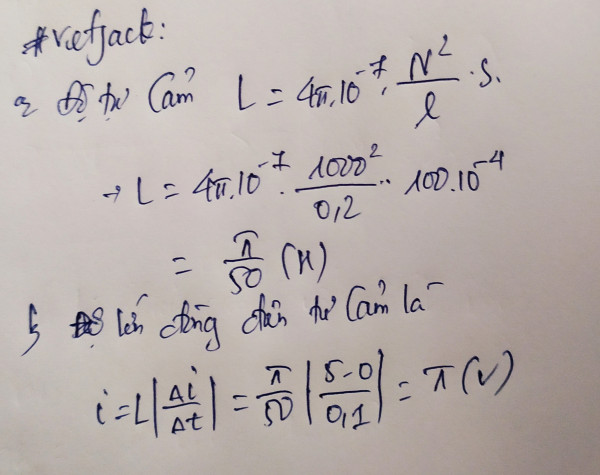 #vietjack:
a, Độ tự cảm L = 4π.10^-7 . N^2/l . S.
→ L = 4π.10^-7 . 1000^2/0,2 . 100.10^-4
= π/50 (H)
b, lớn dòng điện tự cảm là
i = L|Δi/Δt| = π/50 |5-0/0,1| = π(V)